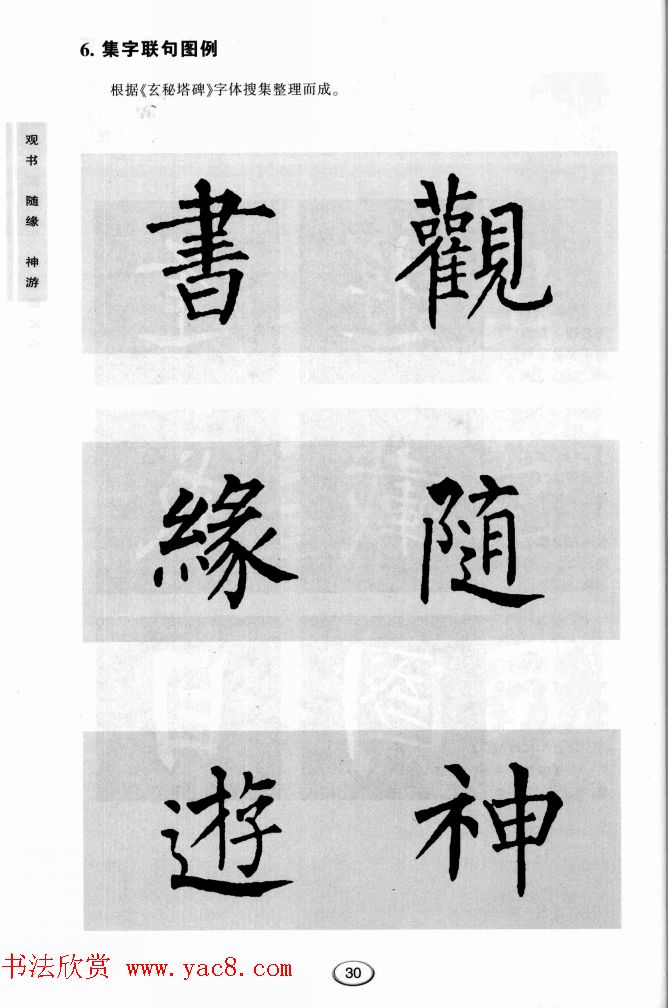 6. 集字联句图例
根据《玄秘塔碑》字体搜集整理而成。
观书 随缘 神游
觀書
随緣
神遊
书法欣赏 www.yac8.com
30